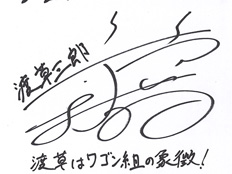 渡草三郎
渡草はワゴン組の象徴!